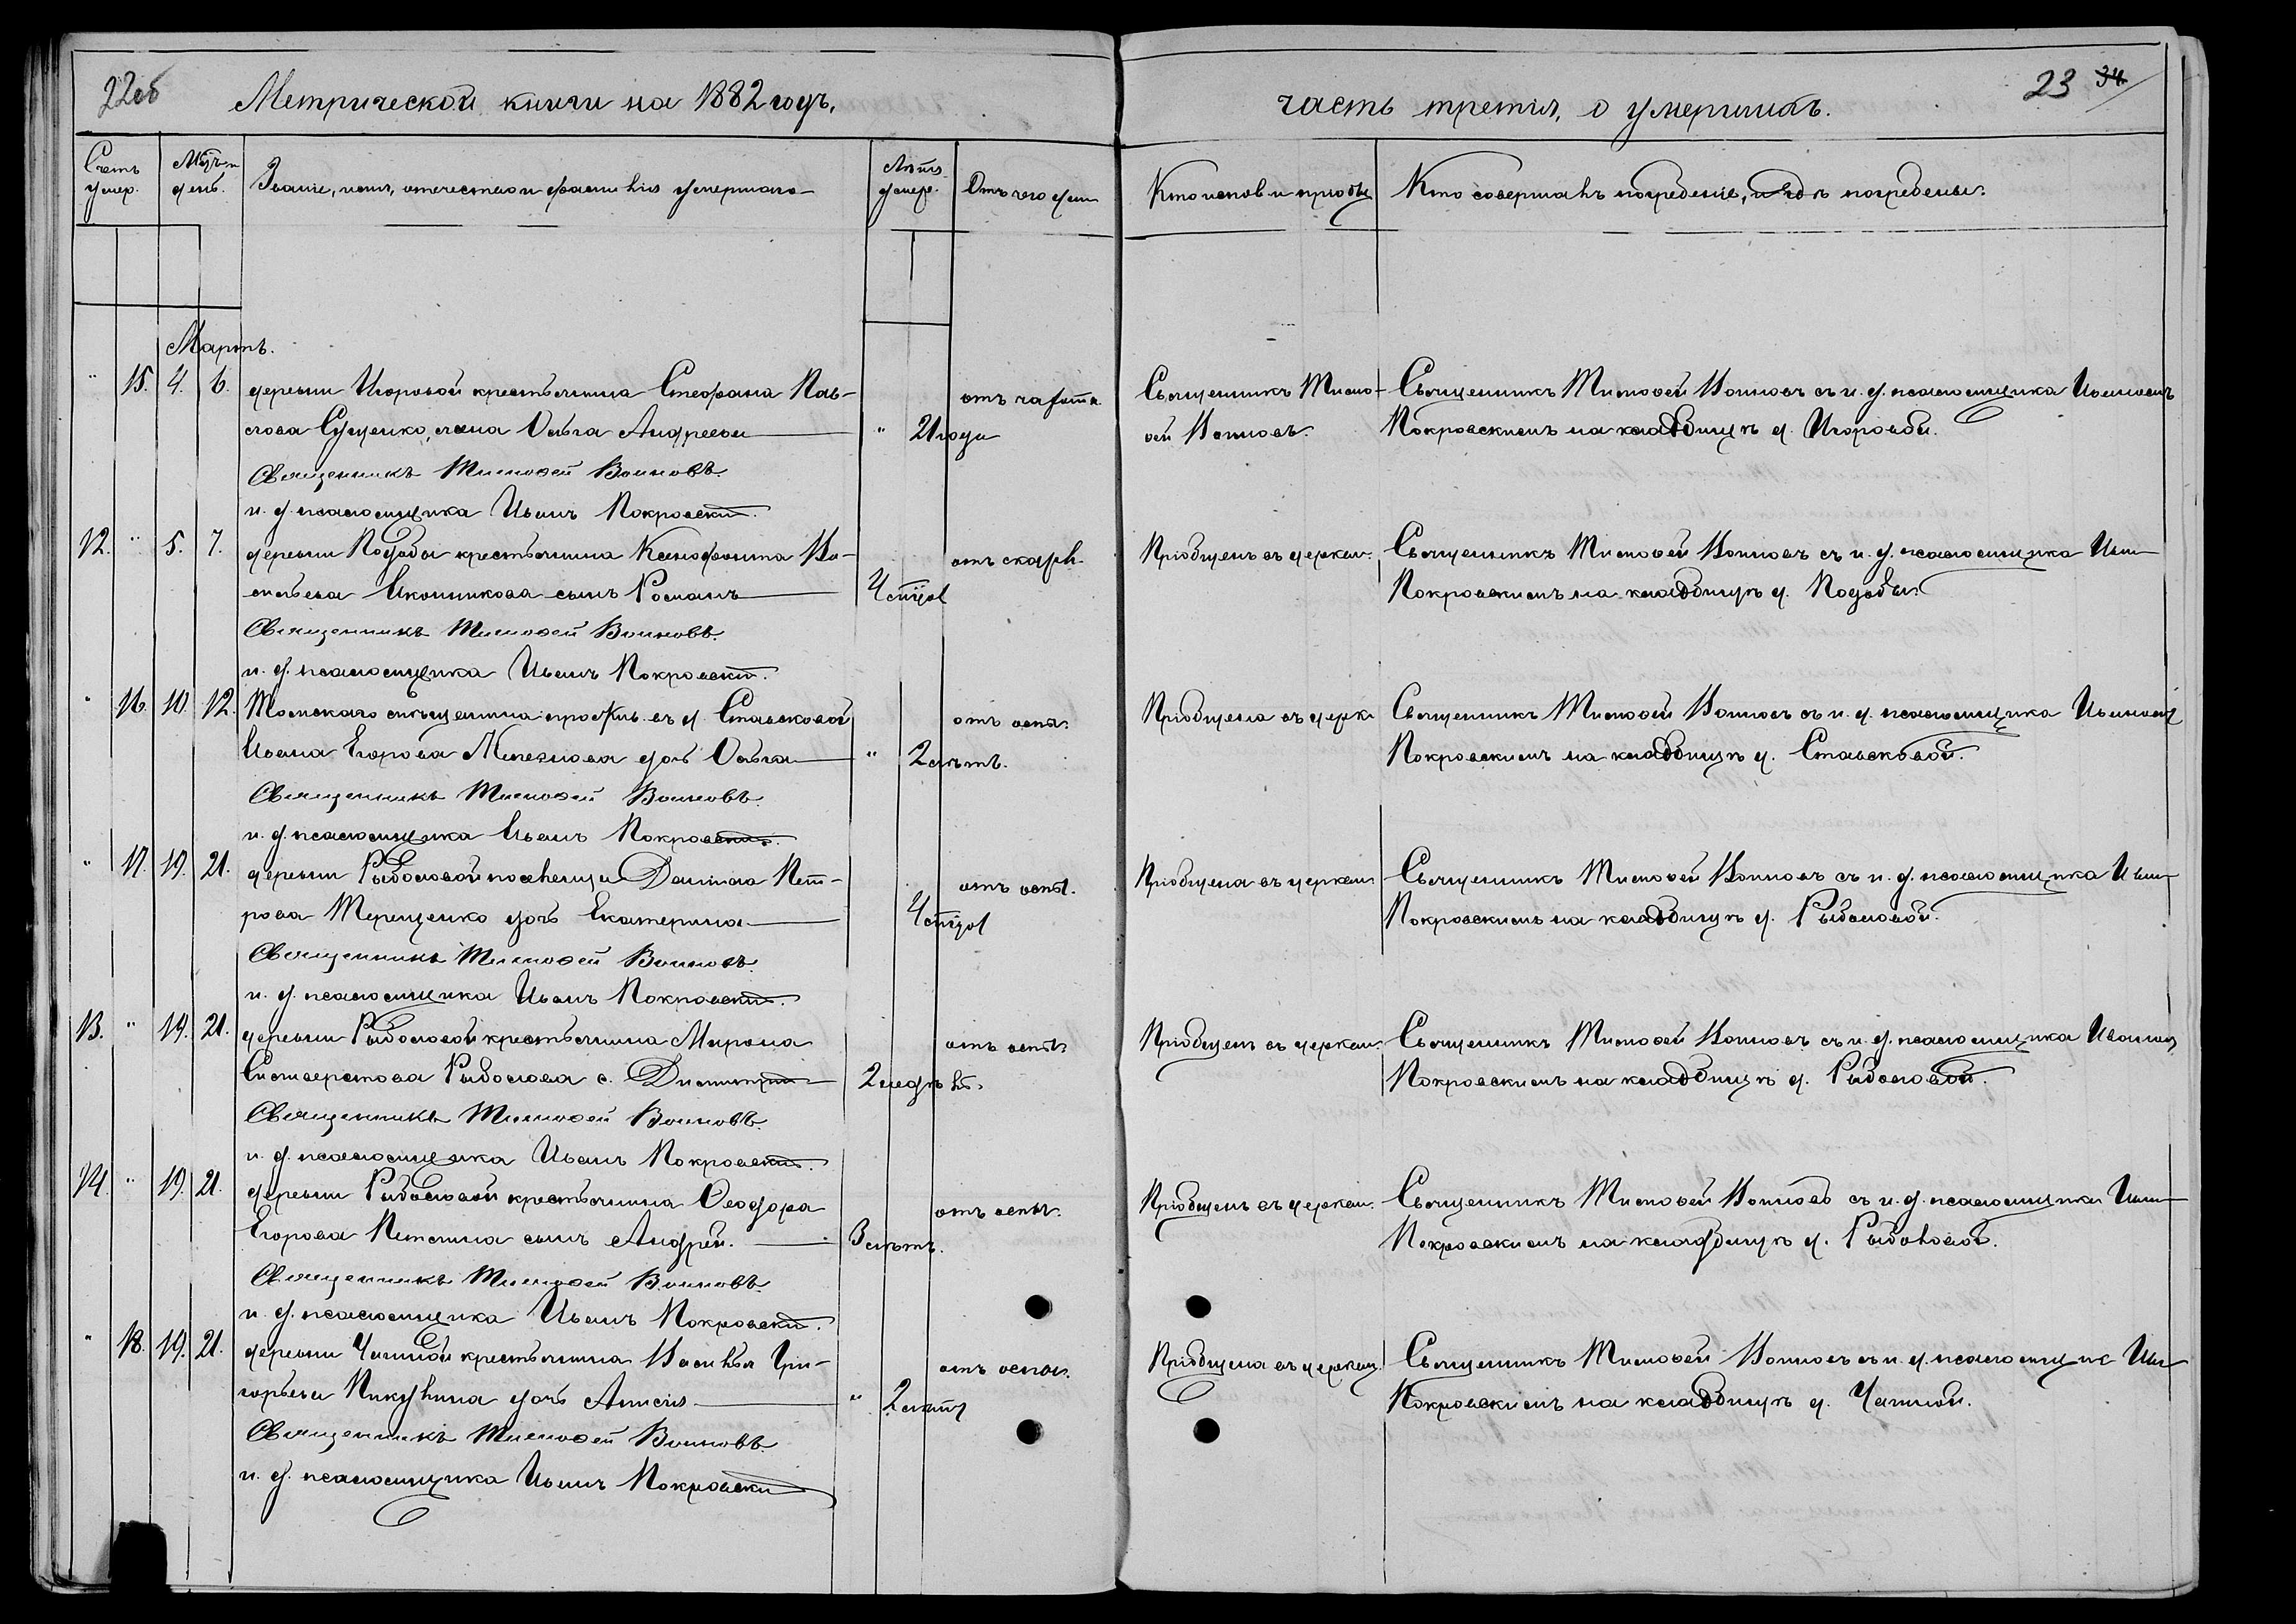 22об
Метрической книги на 1882 годъ,
часть третія, о умершихъ.
23 34
Счетъ умер.
Мѣс. и день.
Званіе, имя, отечество и фамилія умершаго
Лѣта умерш.
Отъ чего умер
Кто испов. и приобщ
Кто совершалъ погребеніе, и гдѣ погребены.
Мартъ.
" 15. 4. 6. деревни Игоровой крестьянина Стефана Пав-
лова Сущенко, жена Ольга Андреева " 21 года
отъ чахотк
Священникъ Тимо-
ѳей Воиновъ.
Священникъ Тимоѳей Воиновъ съ и. д. псаломщика Иваномъ
Покровскимъ на кладбищѣ д. Игоровой.
Священникъ Тимоѳей Воиновъ.
и. д. псаломщика Иванъ Покровскій.
12. " 5. 7. деревни Подобы крестьянина Ксенофонта Ва-
сильева Иконникова сынъ Романъ
отъ скарл.
Пріобщенъ въ церкви.
Священникъ Тимоѳей Воиновъ съ и. д. псаломщика Иван
Покровскимъ на кладбищѣ д. Подобы.
Священникъ Тимоѳей Воиновъ.
и. д. псаломщика Иванъ Покровскій.
" 16. 10. 12. Томскаго мѣщанина прожив. въ д. Ставсковой
Ивана Егорова дочь Ольга " 2 лѣтъ.
отъ осп.
Пріобщена въ церк.
Священникъ Тимоѳей Воиновъ съ и. д. псаломщика Иваномъ
Покровскимъ на кладбищѣ д. Ставсковой.
Священникъ Тимоѳей Воиновъ.
и. д. псаломщика Иванъ Покровскій.
" 17. 19. 21. деревни Рыболовой поселенца Даніила Пет-
рова Терещенко дочь Екатерина
отъ оспы.
Пріобщена въ церкви
Священникъ Тимоѳей Воиновъ съ и. д. псаломщика Иван
Покровскимъ на кладбищѣ д. Рыболовой.
Священникъ Тимоѳей Воиновъ.
и. д. псаломщика Иванъ Покровскій.
13. " 19. 21. деревни Рыболовой крестьянина Мирона
Рыболова с. Димитрій 2 недѣль.
отъ оспы.
Пріобщенъ въ церкви.
Священникъ Тимоѳей Воиновъ съ и. д. псаломщика Иваном
Покровскимъ на кладбищѣ д. Рыболовой.
Священникъ Тимоѳей Воиновъ.
и. д. псаломщика Иванъ Покровскій.
14. " 19. 21. деревни Рыболовой крестьянина Ѳеодора
Егорова сынъ Андрей. 3 лѣтъ.
отъ оспы.
Пріобщенъ въ церкви.
Священникъ Тимоѳей Воиновъ съ и. д. псаломщика Иван
Покровскимъ на кладбищѣ д. Рыболовой.
Священникъ Тимоѳей Воиновъ.
и. д. псаломщика Иванъ Покровскій.
" 18. 19. 21. деревни крестьянина Василья Гри-
горьева Пикулина дочь Анисія " 2 лѣтъ
отъ оспы.
Пріобщена въ церкви.
Священникъ Тимоѳей Воиновъ съ и. д. псаломщик Иван
Покровскимъ на кладбищѣ д.
Священникъ Тимоѳей Воиновъ.
и. д. псаломщика Иванъ Покровскій